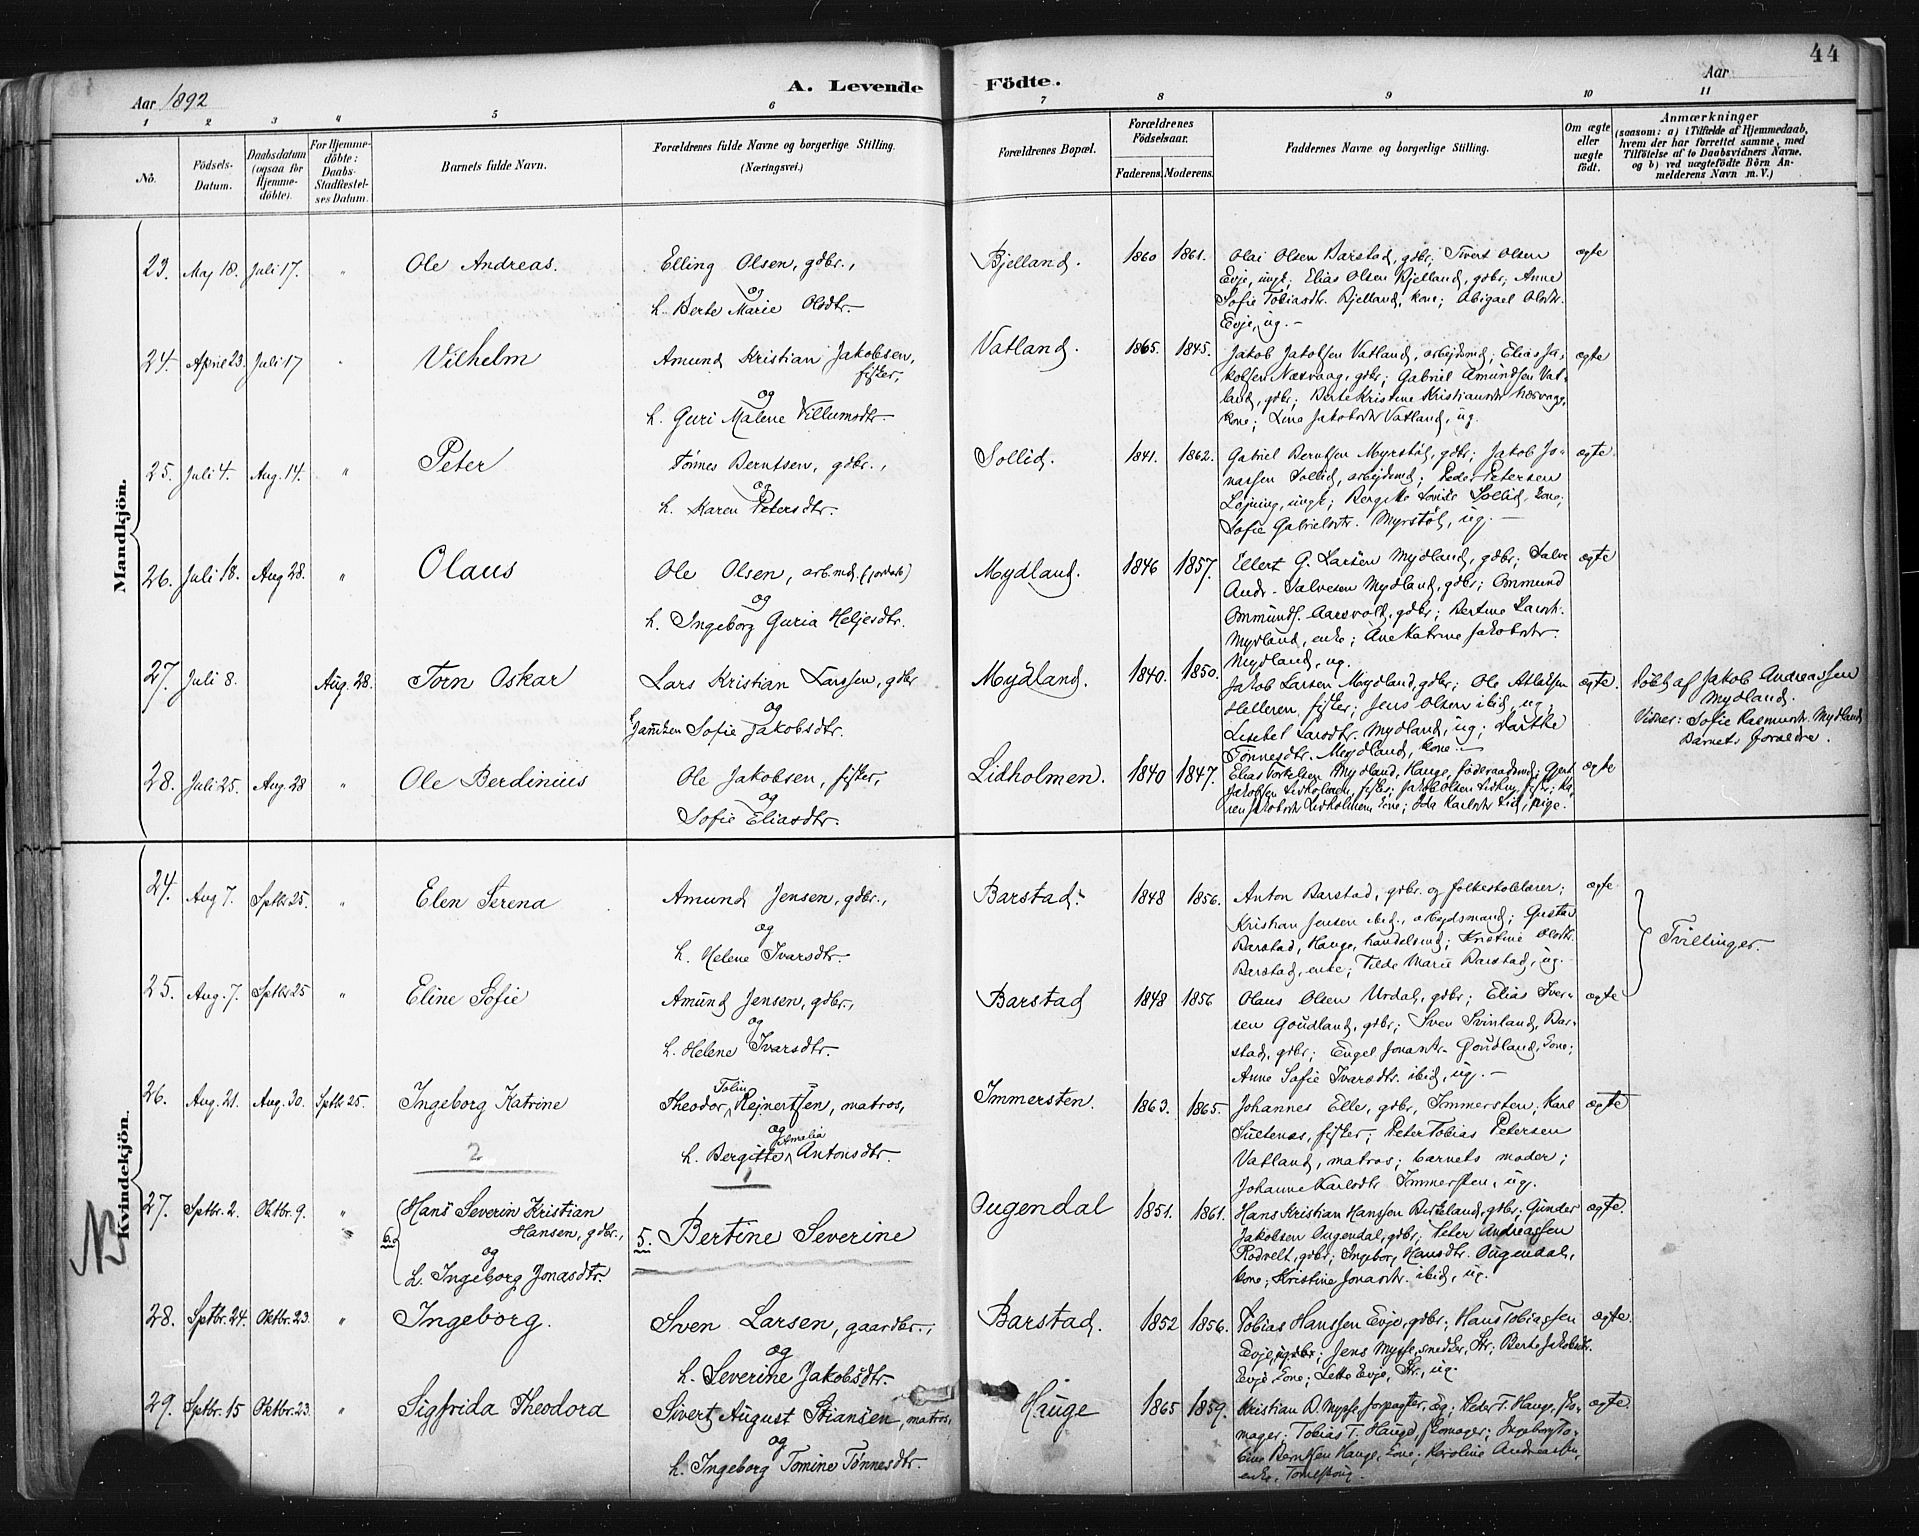 44
Aar 1892
A. Levende
Födte.
Aar
1 2 3 4 5 6
7 8 9 10 11
No.
Födsels-Datum.
Daabsdatum (ogsaa for Hjemmedöbte).
For Hjemmedöbte: Daabs-Stadfæstelses Datum.
Barnets fulde Navn.
Forældrenes fulde Navne og borgerlige Stilling.
(Næringsvei.)
Forældrenes Bopæl.
Forældrenes Födselsaar.
Faderens. Moderens.
Faddernes Navne og borgerlige Stilling.
Om ægte eller uægte födt.
Anmærkninger
(saasom: a) i Tilfælde af Hjemmedaab,
hvem der har forrettet samme, med
Tilföielse af to Daabsvidners Navne,
og b) ved uægtefödte Börn Anmelderens Navn m. V.)
Mandkjön.
23. Maj 18. Juli 17. " Ole Andreas. Elling Olsen, gdbr., Bjelland. 1860 1861. Olai Olsen Barstad, gdbr; Sivert Olsen ægte
og
h. Berte Marie Olsdtr.
Evje, ungk; Elias Olsen Bjelland, gdbr; Anne
Sofie Tobiasdtr. Bjelland, kone; Abigael Olsdtr.
Evje, ug. –
24. April 23. Juli 17 " Vilhelm Amund Kristian Jakobsen, fisker, Vatland. 1865. 1845. Jakob Jakobsen Vatland, arbejdsmd; Elias Ja- ægte
og
h. Guri Malene Villumsdtr.
kobsen Næsvaag, gdbr; Gabriel Amundsen Vat-
land, gdbr; Berte Kristine Kristiansdtr Næsvaag,
kone; Line Jakobsdtr Vatland, ug.
25. Juli 4. Aug. 14. " Peter Tönnes Berntsen, gdbr., Sollid. 1841. 1862. Gabriel Berntsen Myrstöl, gdbr; Jakob Jo- ægte.
og
h. Karen Petersdtr.
nassen Sollid, arbejdsmd; Peder Petersen
Løjning, ungk; Bergitte Lovise Sollid, kone;
Sofie Gabrielsdtr. Myrstöl, ug. –
26. Juli 18. Aug 28. " Olaus Ole Olsen, arb.md. (jordarb) Mydland. 1846 1857. Ellert G. Larsen Mydland, gdbr; Salve ægte
og
h. Ingeborg Guria Heljesdtr.
Andr. Salvesen Mydland, gdbr; Ommund
Ommunds. Aarsvold, gdbr; Bertine Larsdt.
Mydland, enke; Ane Katrine Jakobsdtr.
Mydland, ug.
27. Juli 8. Aug. 28. Torn Oskar Lars Kristian Larssen, gdbr Mydland. 1840. 1850. Jakob Larsen Mydland, gdbr; Ole Atlaksen ægte. Döbt af Jakob Andreassen
og
Sofie Jakobsdtr.
Helleren, fisker; Jens Olsen ibid, ug;
Lisebet Larsdtr. Mydland, ug; Dorthe
Tønnesdtr. Mydland, kone. –
Mydland.
Vidner: Sofie Rasmusdt. Mydland
Barnets forældre.
28. Juli 25. Aug 28 " Ole Berdinius Ole Jakobsen, fisker, Lidholmen. 1840 1847. Elias Torkelsen Mydland, Hauge, föderaadsmd; Gjert ægte
og
Sofie Eliasdtr.
Jakobsen Lidholmen, fisker; Jakob Olsen Lidholm, fisker; Ka-
ren Jakobsdtr Lidholmen, kone; Ida Karlsdtr Lid, pige.
Kvindekjön.
24. Aug 7. Sptbr 25. " Elen Serena Amund Jensen, gdbr., Barstad. 1848 1856. Anton Barstad, gdbr. og folkeskolelærer; ægte
og
h. Helene Ivarsdtr.
Kristian Jensen ibid., arbejdsmand; Gustav
Barstad, Hauge, handelsmd; Kristine Olsdtr.
Barstad, enke; Tilde Marie Barstad, ug. –
Tvillinger.
25. Aug. 7. Sptbr 25 " Eline Sofie Amund Jensen, gdbr., Barstad 1848 1856 Olaus Olsen Urdal, gdbr; Elias Iver- ægte
og
h. Helene Ivarsdtr.
sen Goudland, gdbr; Sven Svinland, Bar-
stad, gdbr; Engel Jonasdtr. Goudland, kone;
Anne Sofie Ivarsdtr. ibid, ug. –
26. Aug. 21. Aug. 30. Sptbr 25. Ingeborg Katrine Theodor Tolin Rejnertsen, matros, Immersten. 1863. 1865. Johannes Elle, gdbr, Immersten; Karl ægte
og
h. Bergitte Amalia Antonsdtr.
Suletnes, fisker; Peter Tobias Petersen
Vatland, matros; barnets moder;
Johanne Karlsdtr Immersten, ug.
2 1
NB
27. Sptbr. 2. Oktbr. 9. " Hans Severin Kristian Hansen, gdbr., 5. Bertine Severine Ougendal 1851. 1861. Hans Kristian Hanssen Birkeland, gdbr; Gunder ægte.
6.
og
h. Ingeborg Jonasdtr.
Jakobsen Ougendal, gdbr; Peter Andreassen
Rodvelt, gdbr; Ingeborg Hansdtr. Ougendal,
kone; Kristine Jonasdtr. ibid, ug.
28. Sptbr. 24. Oktbr. 23. " Ingeborg. Sven Larsen, gaardbr., Barstad. 1852 1856. Tobias Hanssen Evje, gdbr; Hans Tobiassen ægte.
og
h. Severine Jakobsdtr.
Evje, gdbr; Jens Mysse, snedker, Str; Berte Jakobsdtr.
Evje, kone; Lette Evje, Str, ug.
29. Sptbr. 15 Oktbr. 23. " Sigfrida Theodora Sivert August Stiansen, matros, Hauge 1865 1859. Kristian B. Mysse, forpagter, ug; Peder T. Hauge, sko- ægte.
og
h. Ingeborg Tomine Tønnesdtr.
mager; Tobias T. Hauge, skomager; Ingeborg To-
bine Berntsen Hauge, kone; Karoline Andreassen,
enke,